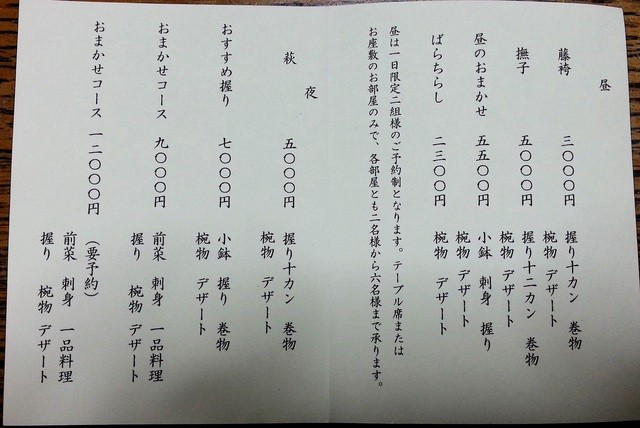 昼
藤袴 三〇〇〇円 握り十カン 巻物
椀物 デザート
撫子 五〇〇〇円 握り十二カン 巻物
椀物 デザート
昼のおまかせ 五五〇〇円 小鉢 刺身 握り
椀物 デザート
ばらちらし 二三〇〇円 椀物 デザート
昼は一日限定二組様のご予約制となります。テーブル席または
お座敷のお部屋のみで、各部屋とも二名様から六名様まで承ります。
夜
萩 五〇〇〇円 握り十カン 巻物
椀物 デザート
おすすめ握り 七〇〇〇円 小鉢 握り 巻物
椀物 デザート
おまかせコース 九〇〇〇円 前菜 刺身 一品料理
握り 椀物 デザート
おまかせコース 一二〇〇〇円 (要予約)
前菜 刺身 一品料理
握り 椀物 デザート